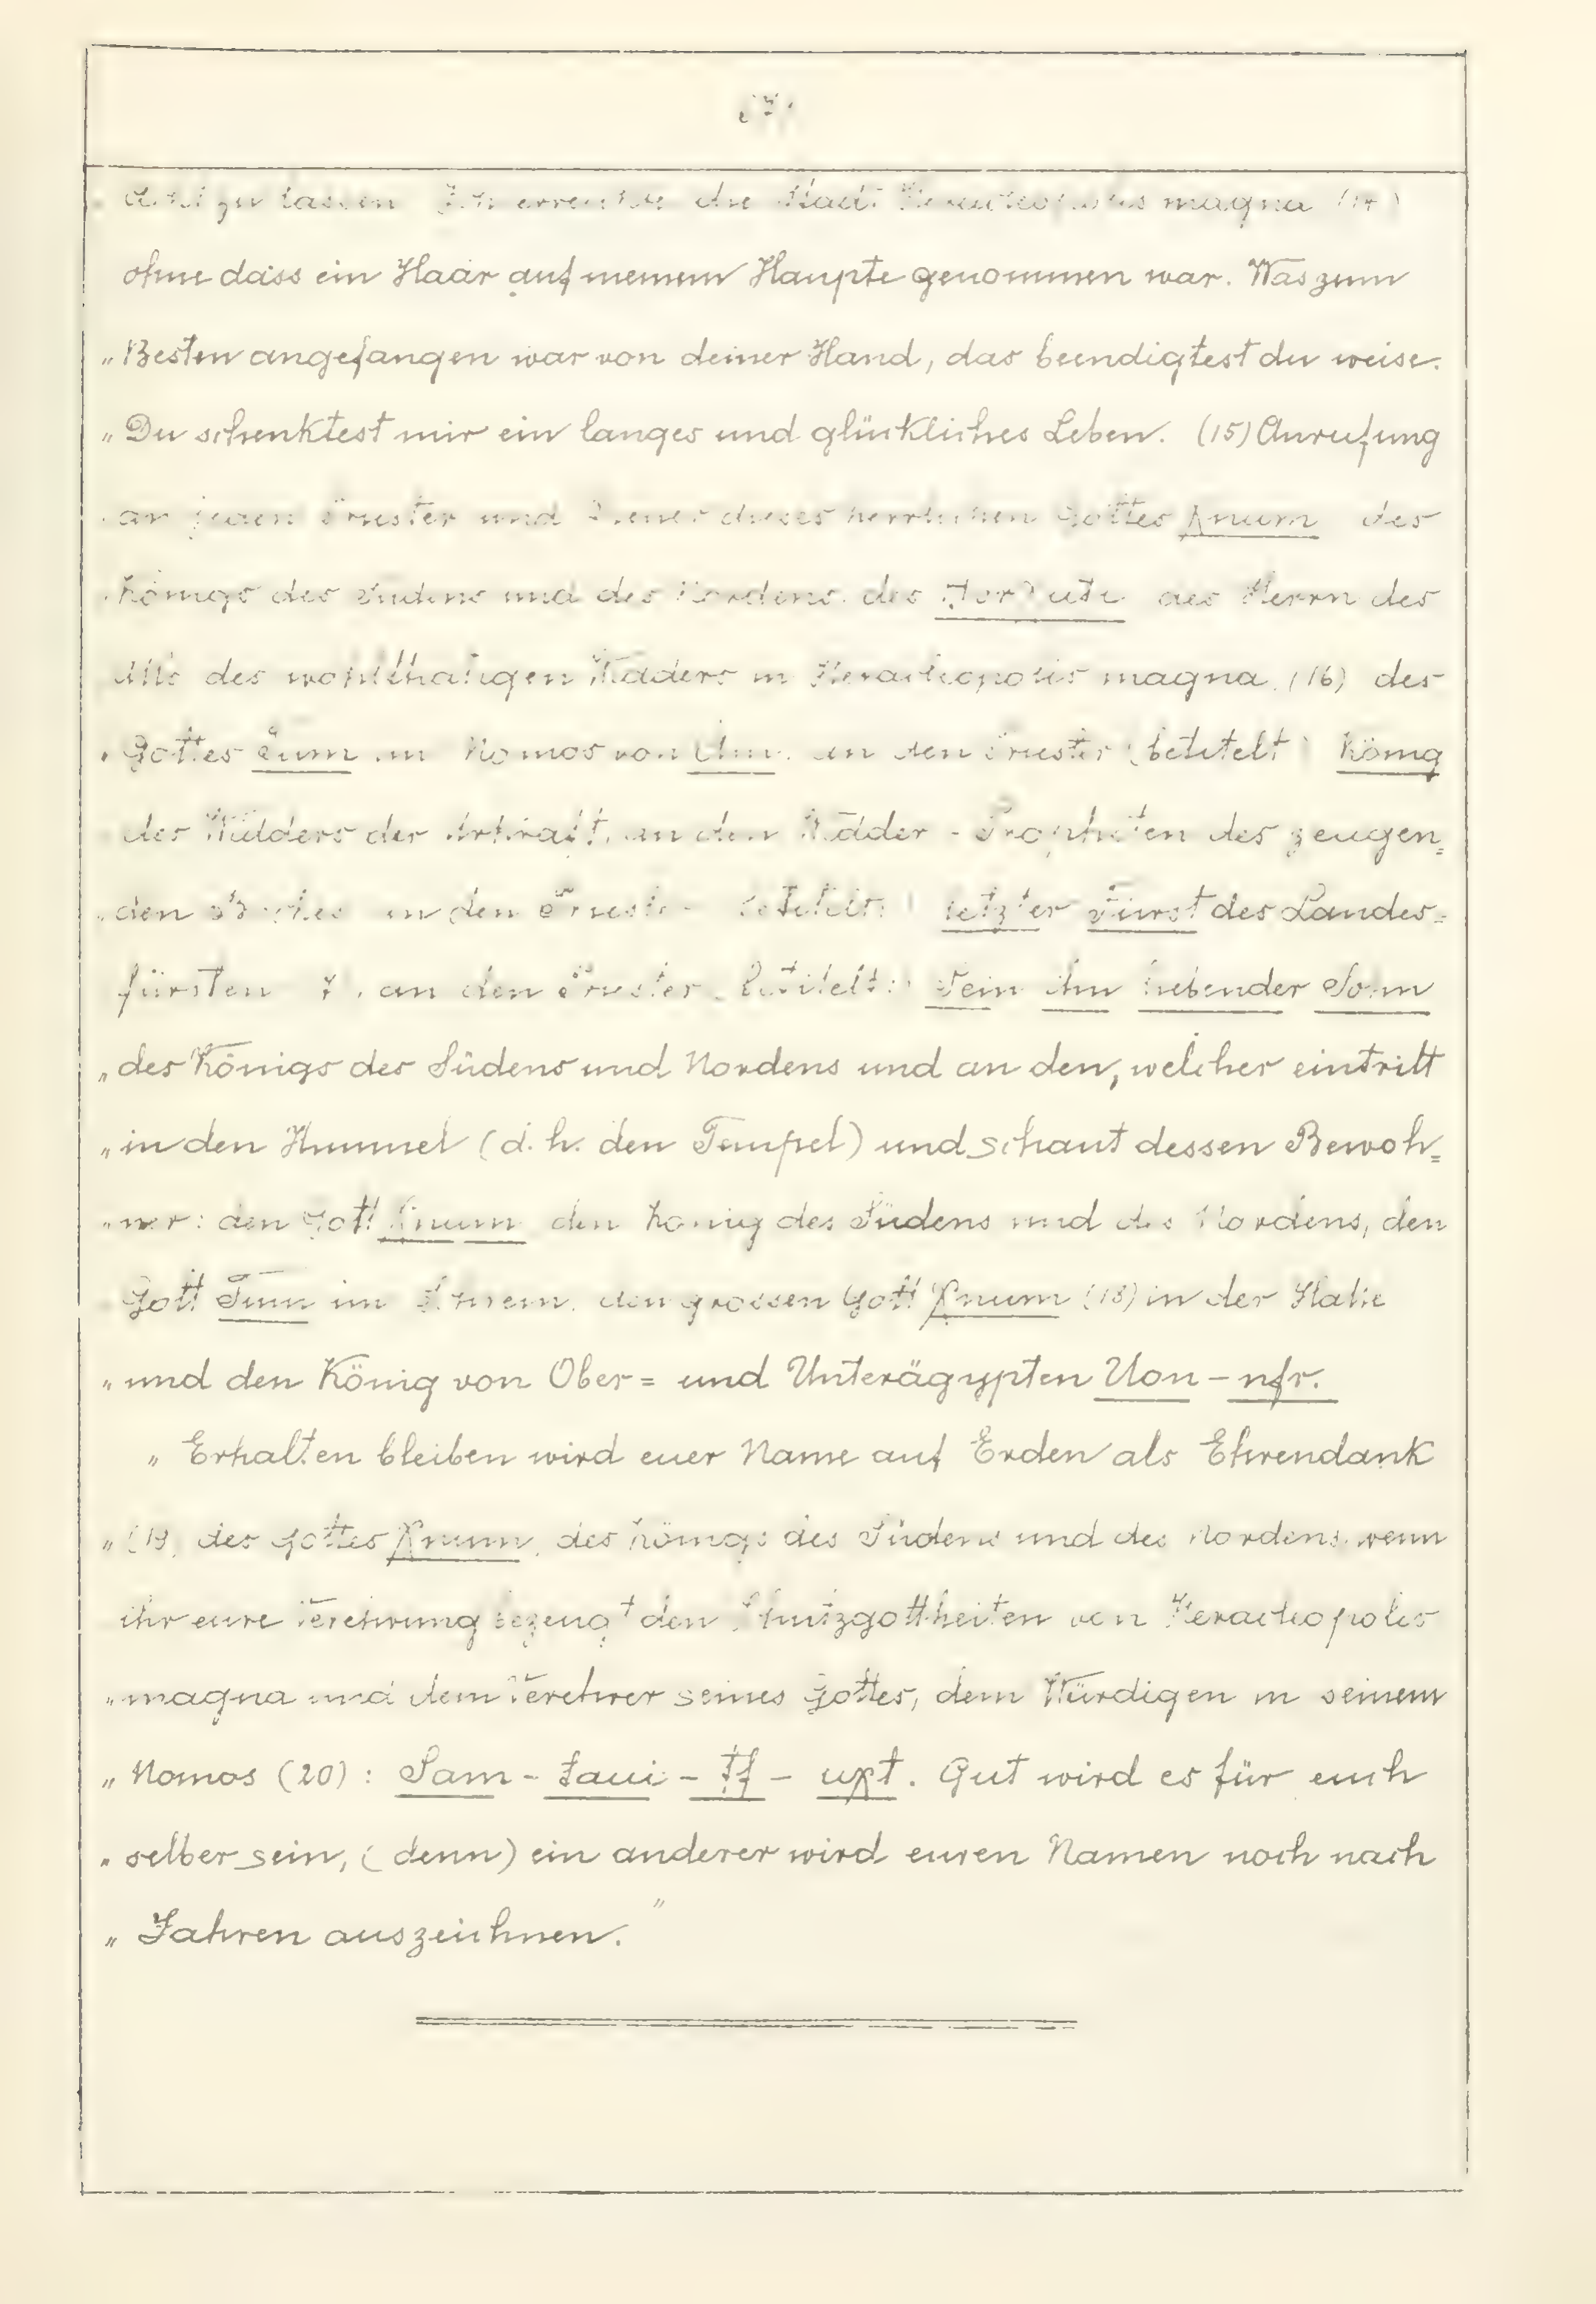 zu lassen Ich erreichte die Stadt Heracleopolis magna (14)
ohne dass ein Haar auf meinem Haupte genommen war. Was zum
„ Besten angefangen war von deiner Hand, das beendigtest du weise.
„ Du schenktest mir ein langes und glückliches Leben. (15) Anrufung
an jeden Priester und Diener dieses herrlichen Gottes Xnum des
Königs des Südens und des Nordens, des des Herrn des
Alls des wohlthätigen Widders in Heracleopolis magna (16) des
„ Gottes Tum im Nomos von an den Priester (betitelt) König
des Widders der an den Widder - Propheten des zeugen=
„ den an den Priester betitelt: letzter Fürst des Landes=
fürsten an den Priester betitelt: Sein ihn liebender Sohn
„ des Königs des Südens und Nordens und an den, welcher eintritt
„ in den Himmel (d. h. den Tempel) und schaut dessen Bewoh=
„ ner: den Gott Xnum den König des Südens und des Nordens, den
Gott Tum im den grossen Gott Xnum (18) in der Halle
„ und den König von Ober= und Unterägypten Uon - nfr.
„ Erhalten bleiben wird euer Name auf Erden als Ehrendank
„ (19) des Gottes Xnum, des Königs des Südens und des Nordens, wenn
ihr eure Verehrung bezeugt den Schutzgottheiten von Heracleopolis
„ magna und dem Verehrer seines Gottes, dem Würdigen in seinem
„ Nomos (20): Sam - taui - tf - uχt. Gut wird es für euch
„ selber sein, (denn) ein anderer wird euren Namen noch nach
„ Jahren auszeichnen. "